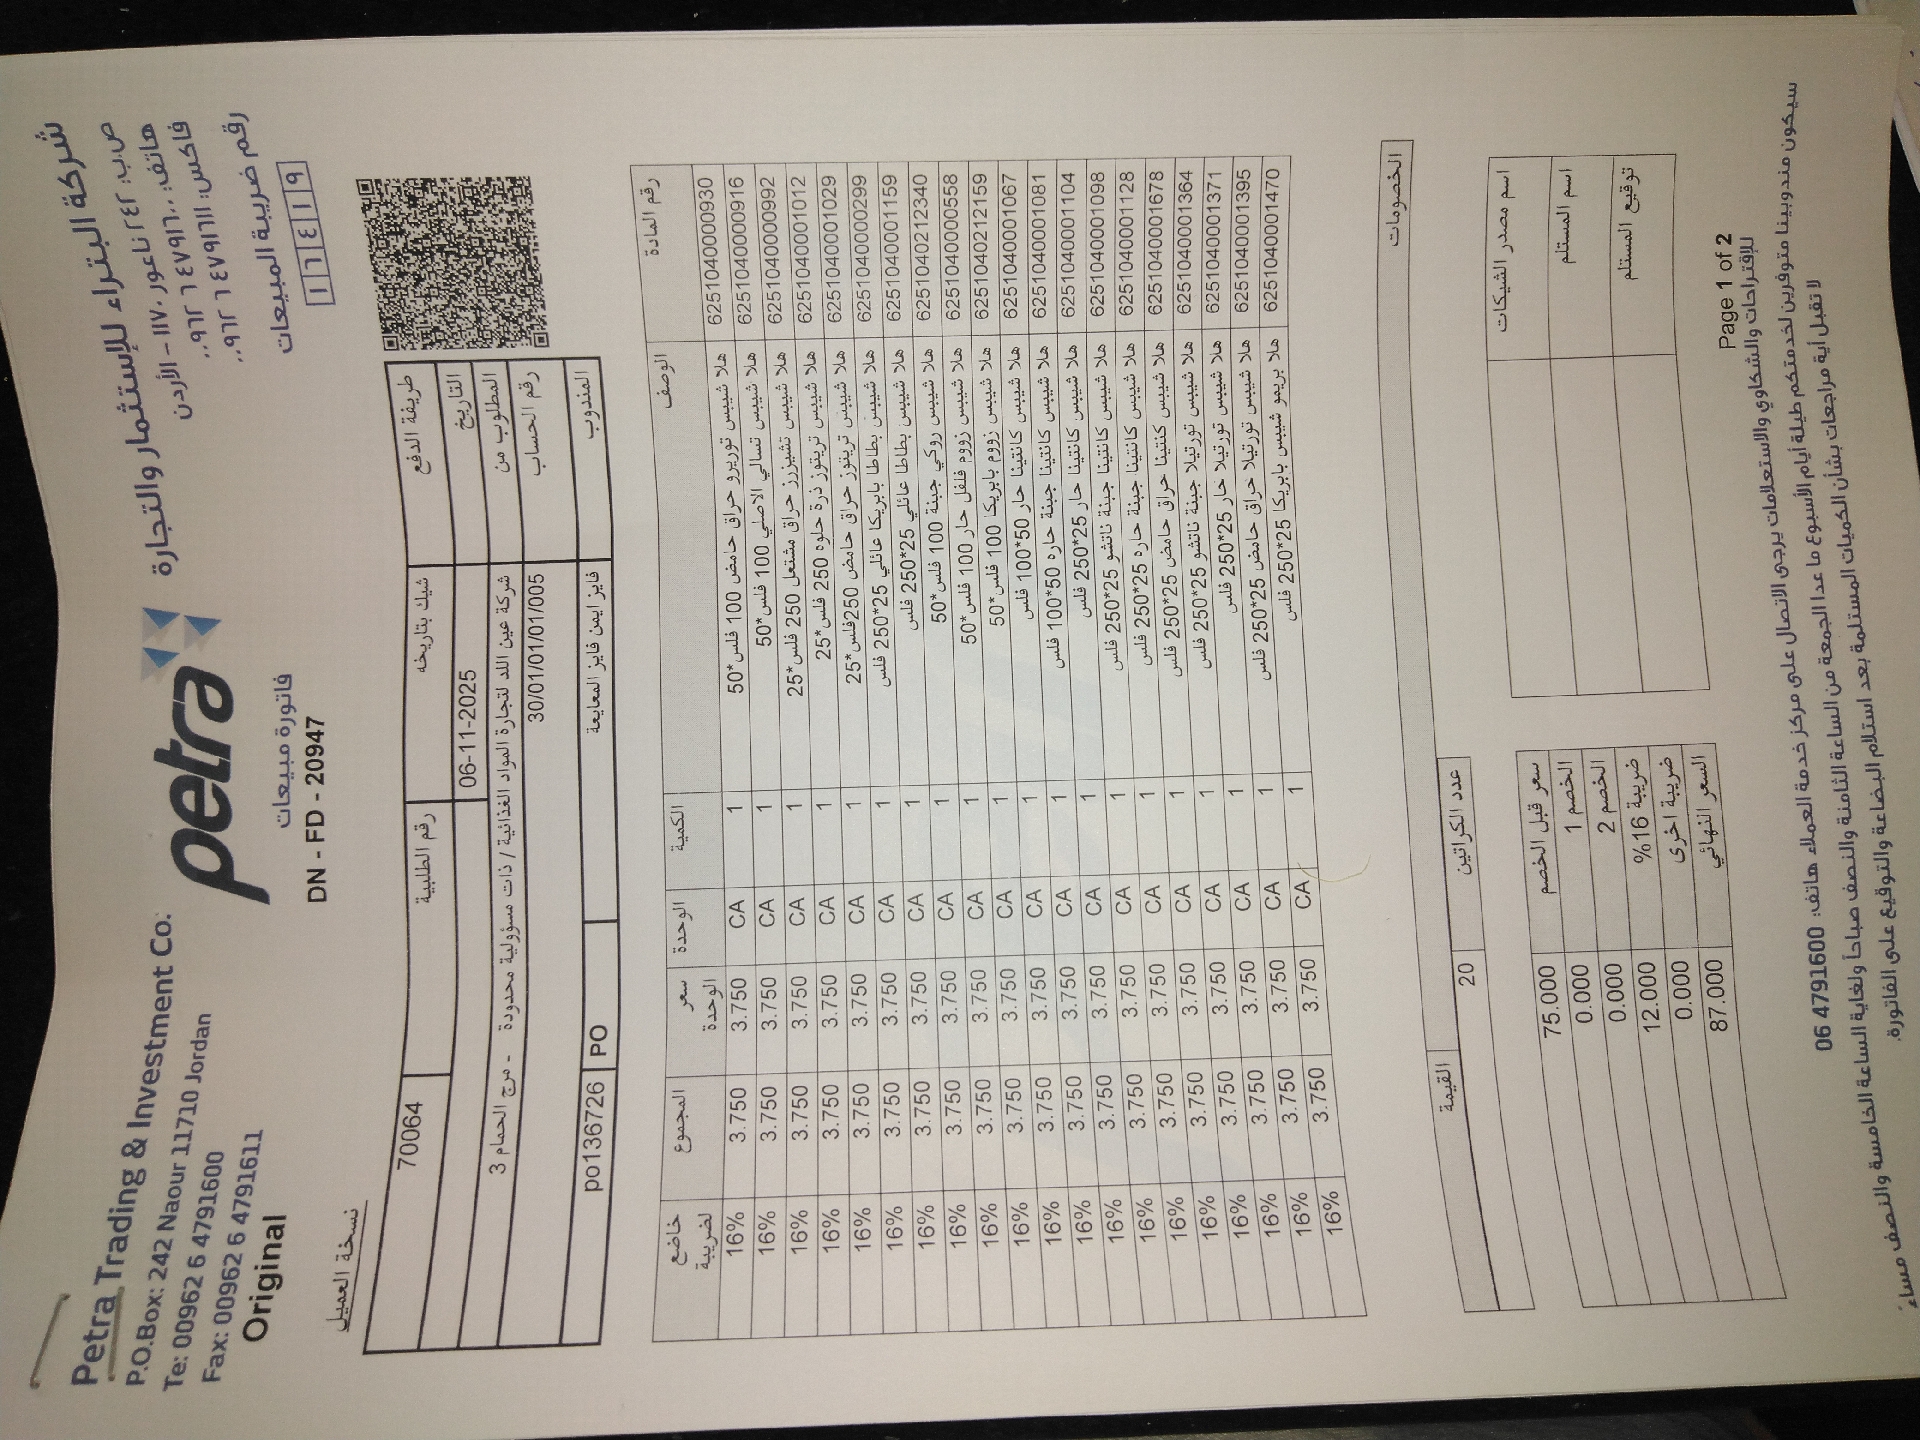 شركة البتراء للإستثمار والتجارة
ص.ب: ٢٤٢ ناعور ١١٧١٠ – الأردن
هاتف: ٤٧٩١٦٠٠ ٦ ٩٦٢..
فاكس: ٤٧٩١٦١١ ٦ ٩٦٢..
رقم ضريبة المبيعات
١٦٤١٩
petra
Petra Trading & Investment Co.
P.O.Box: 242 Naour 11710 Jordan
Te: 00962 6 4791600
Fax: 00962 6 4791611
Original
فاتورة مبيعات
DN - FD - 20947
نسخة العميل
طريقة الدفع شيك بتاريخه رقم الطلبية 70064
التاريخ 06-11-2025
المطلوب من شركة عين اللد لتجارة المواد الغذائية / ذات مسؤولية محدودة - مرج الحمام 3
رقم الحساب 30/01/01/01/005
المندوب فايز ايمن فايز المعايعة PO po136726
رقم المادة الوصف الكمية الوحدة سعر الوحدة المجموع خاضع لضريبة
6251040000930 هلا شيبس توريرو حراق حامض 100 فلس*50 1 CA 3.750 3.750 16%
6251040000916 هلا شيبس تسالي الاصلي 100 فلس*50 1 CA 3.750 3.750 16%
6251040000992 هلا شيبس تشيرزز حراق مشتعل 250 فلس*25 1 CA 3.750 3.750 16%
6251040001012 هلا شيبس تريتوز ذرة حلوه 250 فلس*25 1 CA 3.750 3.750 16%
6251040001029 هلا شيبس تريتوز حراق حامض 250فلس*25 1 CA 3.750 3.750 16%
6251040000299 هلا شيبس بطاطا بابريكا عائلي 25*250 فلس 1 CA 3.750 3.750 16%
6251040001159 هلا شيبس بطاطا عائلي 25*250 فلس 1 CA 3.750 3.750 16%
6251040212340 هلا شيبس روكي جبنة 100 فلس*50 1 CA 3.750 3.750 16%
6251040000558 هلا شيبس زووم فلفل حار 100 فلس*50 1 CA 3.750 3.750 16%
6251040212159 هلا شيبس زووم بابريكا 100 فلس*50 1 CA 3.750 3.750 16%
6251040001067 هلا شيبس كانتينا حار 50*100 فلس 1 CA 3.750 3.750 16%
6251040001081 هلا شيبس كانتينا جبنة حاره 50*100 فلس 1 CA 3.750 3.750 16%
6251040001104 هلا شيبس كانتينا حار 25*250 فلس 1 CA 3.750 3.750 16%
6251040001098 هلا شيبس كانتينا جبنة ناتشو 25*250 فلس 1 CA 3.750 3.750 16%
6251040001128 هلا شيبس كانتينا جبنة حاره 25*250 فلس 1 CA 3.750 3.750 16%
6251040001678 هلا شيبس كنتينا حراق حامض 25*250 فلس 1 CA 3.750 3.750 16%
6251040001364 هلا شيبس تورتيلا جبنة ناتشو 25*250 فلس 1 CA 3.750 3.750 16%
6251040001371 هلا شيبس تورتيلا حار 25*250 فلس 1 CA 3.750 3.750 16%
6251040001395 هلا شيبس تورتيلا حراق حامض 25*250 فلس 1 CA 3.750 3.750 16%
6251040001470 هلا بريمو شيبس بابريكا 25*250 فلس 1 CA 3.750 3.750 16%
الخصومات
عدد الكراتين القيمة
20
اسم مصدر الشيكات
اسم المستلم
توقيع المستلم
سعر قبل الخصم 75.000
الخصم 1 0.000
الخصم 2 0.000
ضريبة 16% 12.000
ضريبة اخرى 0.000
السعر النهائي 87.000
Page 1 of 2
للإقتراحات والشكاوي والاستعلامات يرجى الاتصال على مركز خدمة العملاء هاتف: 4791600 06
سيكون مندوبينا متوفرين لخدمتكم طيلة أيام الأسبوع ما عدا الجمعة من الساعة الثامنة والنصف صباحاً ولغاية الساعة الخامسة والنصف مساءً
لا تقبل أية مراجعات بشأن الكميات المستلمة بعد استلام البضاعة والتوقيع على الفاتورة.